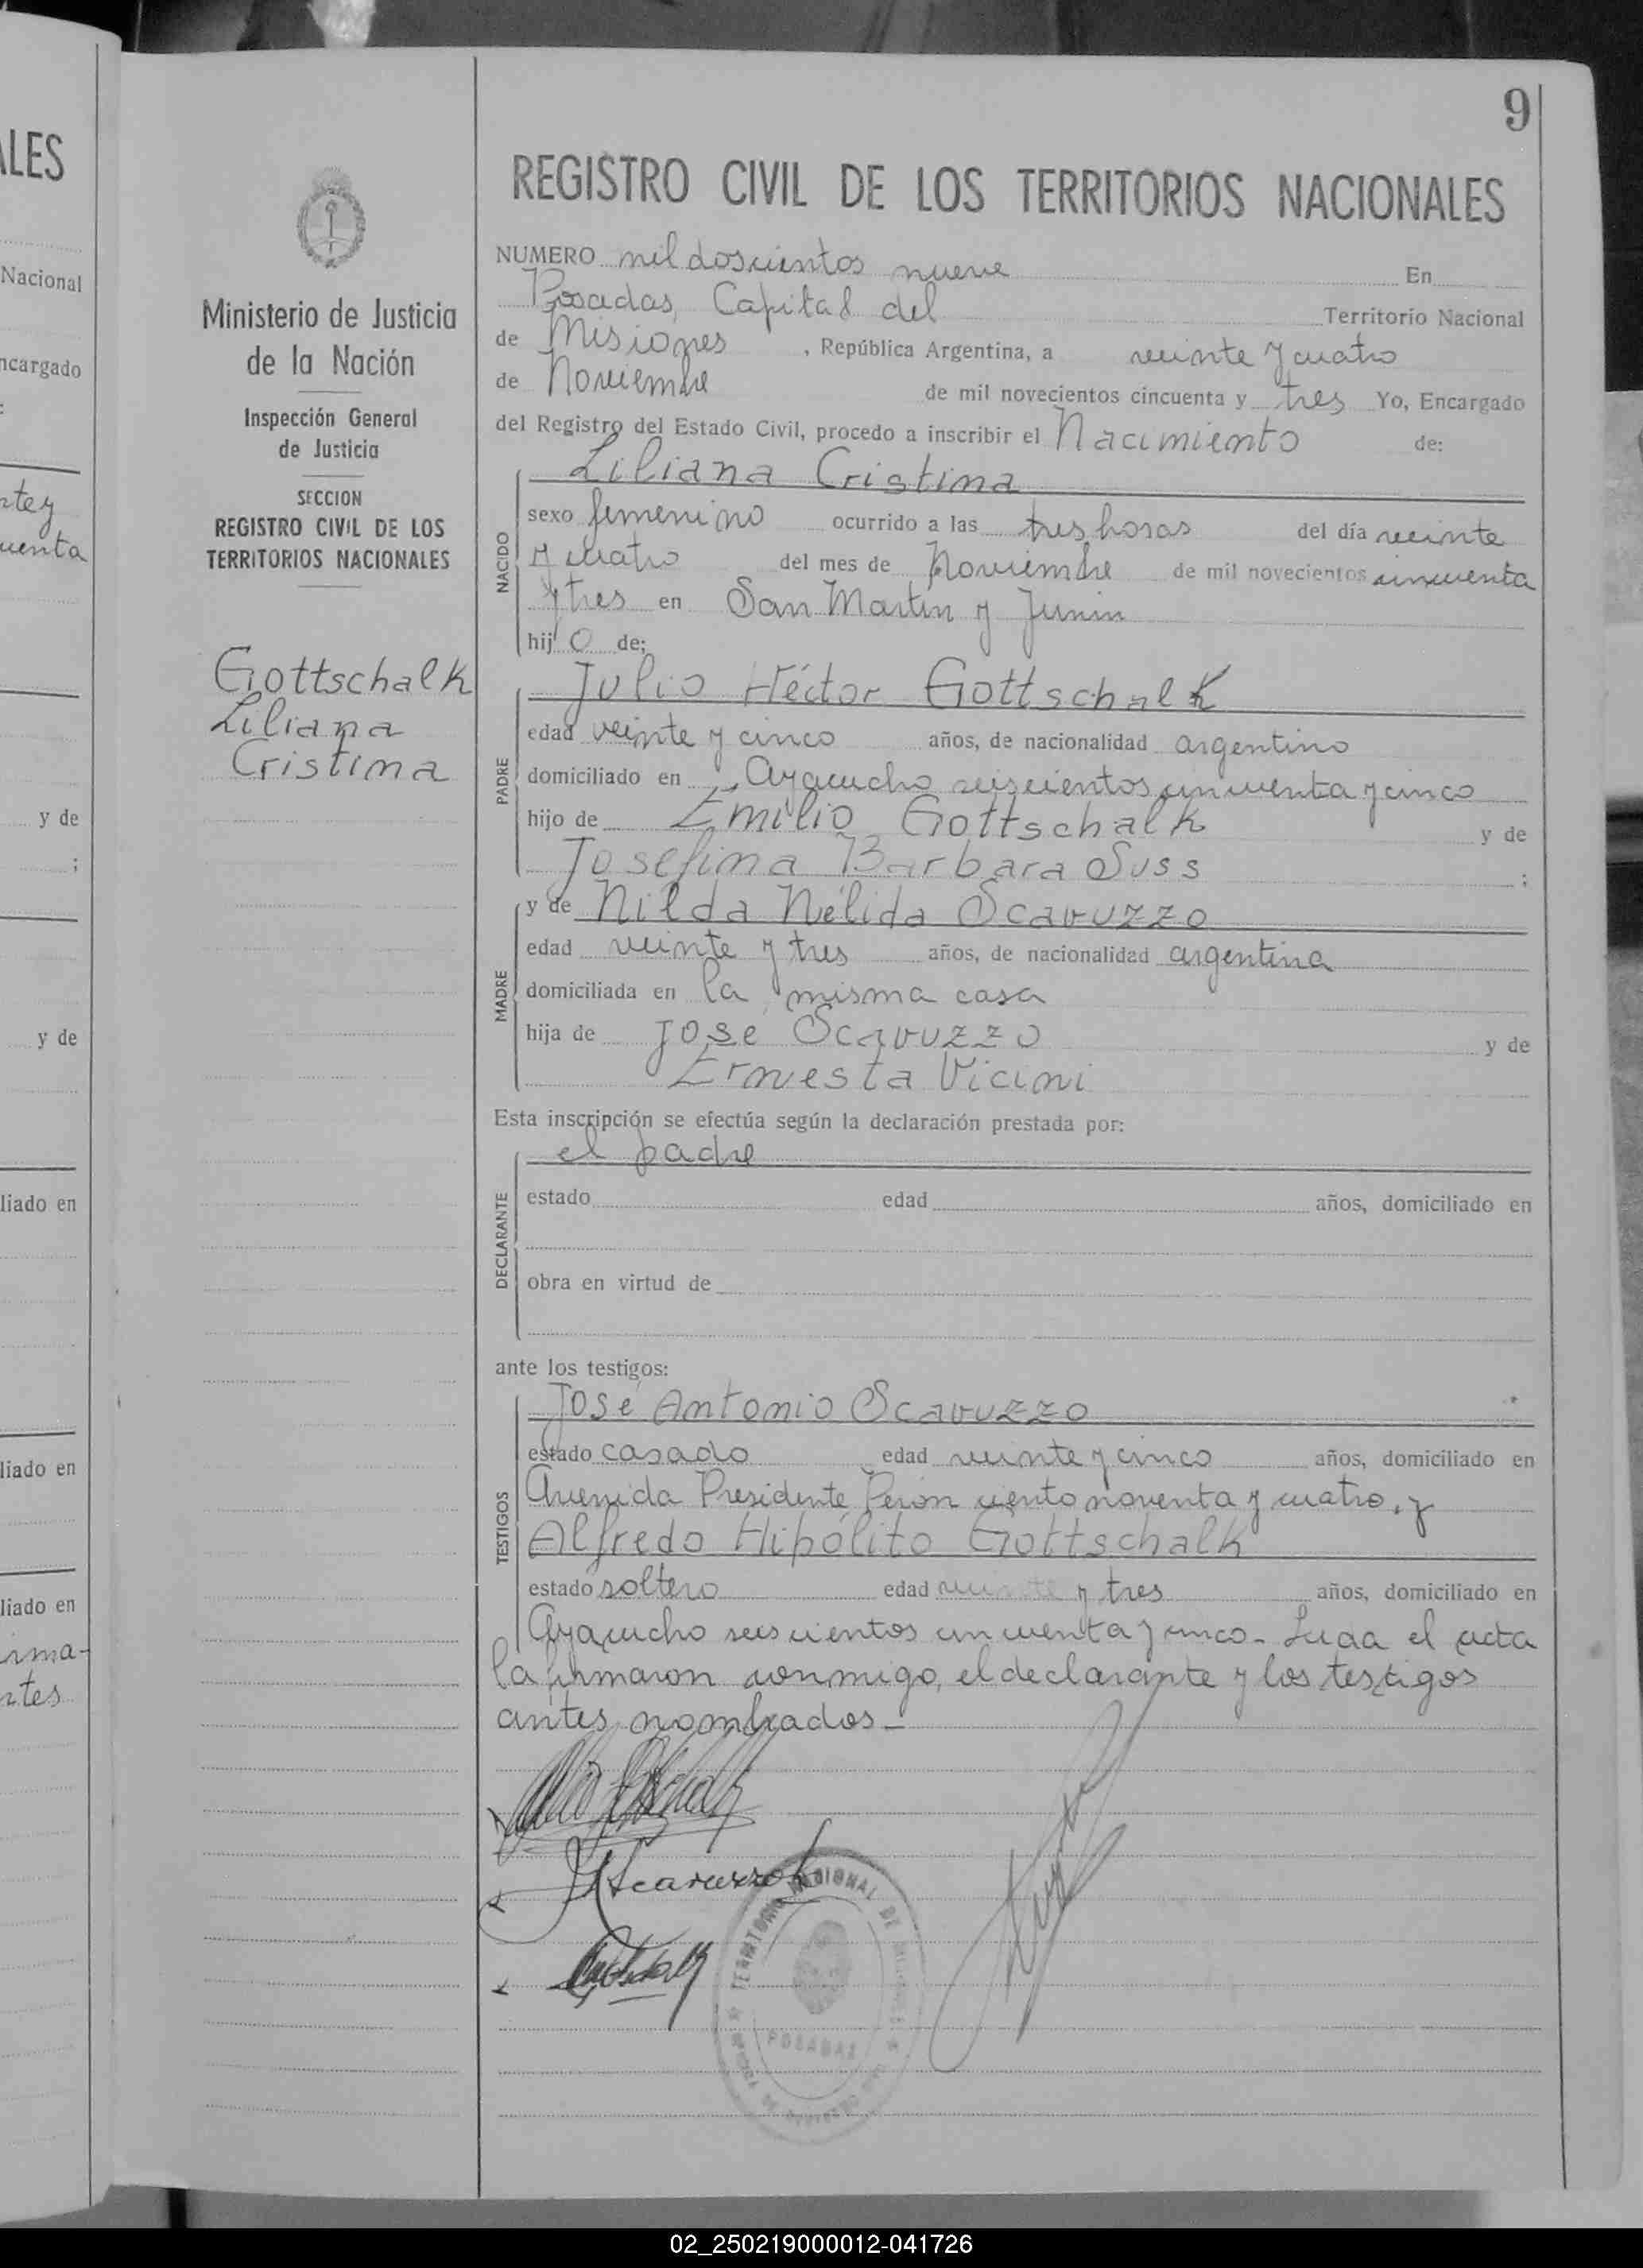 9
ALES
Nacional
ncargado
:
ntey
uenta
y de
;
y de
liado en
liado en
liado en
irma-
ntes
Ministerio de Justicia
de la Nación
Inspección General
de Justicia
SECCION
REGISTRO CIVIL DE LOS
TERRITORIOS NACIONALES
Gottschalk
Liliana
Cristina
REGISTRO CIVIL DE LOS TERRITORIOS NACIONALES
NUMERO mil doscientos nueve En
Posadas, Capital del Territorio Nacional
de Misiones, República Argentina, a veinte y cuatro
de Noviembre de mil novecientos cincuenta y tres Yo, Encargado
del Registro del Estado Civil, procedo a inscribir el Nacimiento de:
Liliana Cristina
NACIDO
sexo femenino ocurrido a las tres horas del día veinte
y cuatro del mes de Noviembre de mil novecientos cincuenta
y tres en San Martín y Junin
hij o de;
Julio Héctor Gottschalk
PADRE
edad veinte y cinco años, de nacionalidad argentino
domiciliado en Ayacucho seiscientos cincuenta y cinco
hijo de Emilio Gottschalk y de
Josefina Barbara Suss ;
y de Nilda Nélida Scavuzzo
MADRE
edad veinte y tres años, de nacionalidad argentina
domiciliada en la misma casa
hija de José Scavuzzo y de
Ernesta Vicini
Esta inscripción se efectúa según la declaración prestada por:
el padre
DECLARANTE
estado edad años, domiciliado en
obra en virtud de
ante los testigos:
José Antonio Scavuzzo
TESTIGOS
estado casado edad veinte y cinco años, domiciliado en
Avenida Presidente Perón ciento noventa y cuatro, y
Alfredo Hipólito Gottschalk
estado soltero edad veinte y tres años, domiciliado en
Ayacucho seiscientos cincuenta y cinco. Leida el acta
la firmaron conmigo, el declarante y los testigos
antes nombrados_
TERRITORIO NACIONAL DE MISIONES
POSADAS
02_250219000012-041726